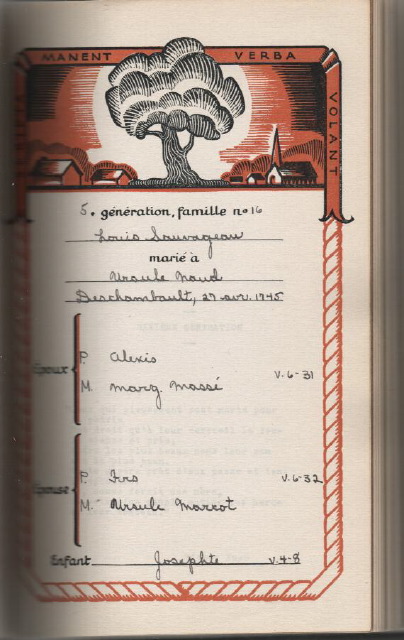 MANENT VERBA
VOLANT
5. génération, famille no 16
Louis Sauvageau
marié à
Ursule Naud
Deschambault, 27 avr. 1745
Époux
P. Alexis
M. Marg. Massé
v. 6-31
Épouse
P. Frs
v. 6-32
M. Ursule Marcot
Enfant Josephte v. 4-8